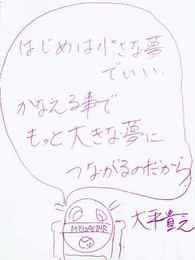 はじめは小さな夢
でいい
かなえる事で
もっと大きな夢に
つながるのだから
大平貴之